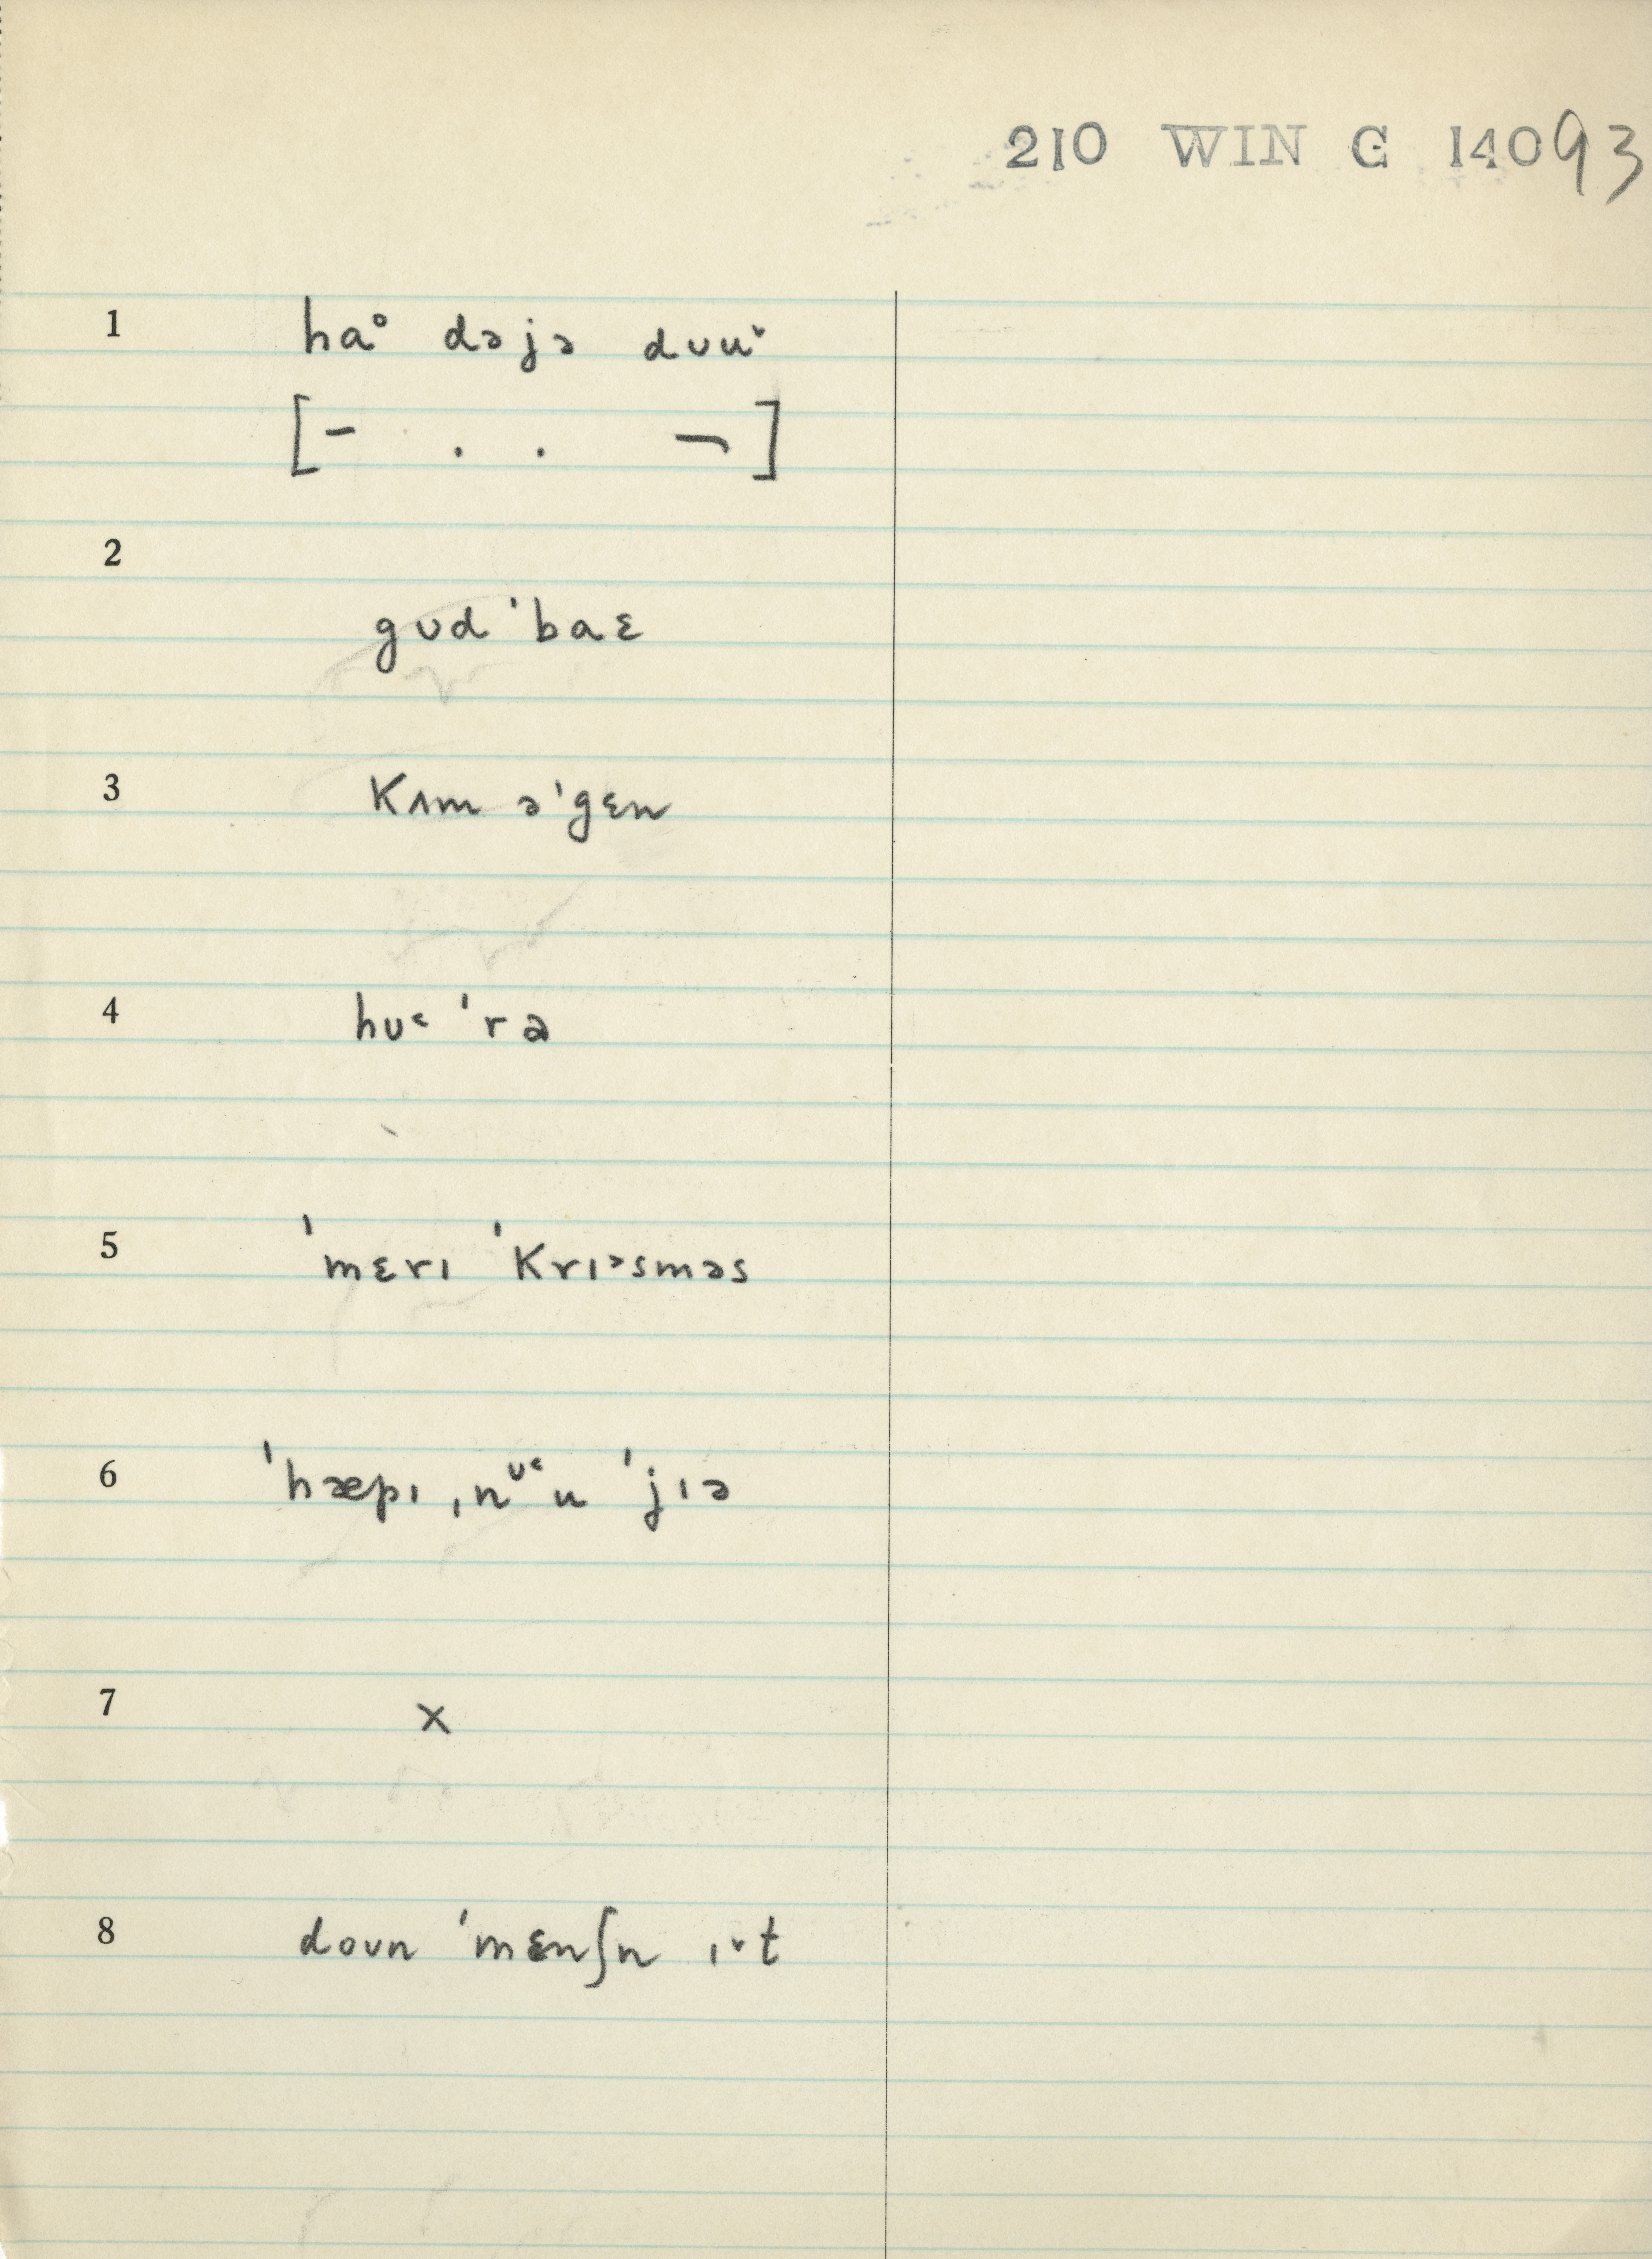 210 WIN G 14093
1 haᵒ dəjə dʊuˇ
[– . . ¬]
2
gʊd ˈbaɛ
3 kʌm əˈgɛn
4 hʊ˂ ˈrɐ
5 ˈmɛrɪ ˈkrɪᵊsməs
6 ˈhæpɪ ˌnᶷ˂u ˈjɪə
7 x
8 doʊn ˈmɛnʃn ɪˇt